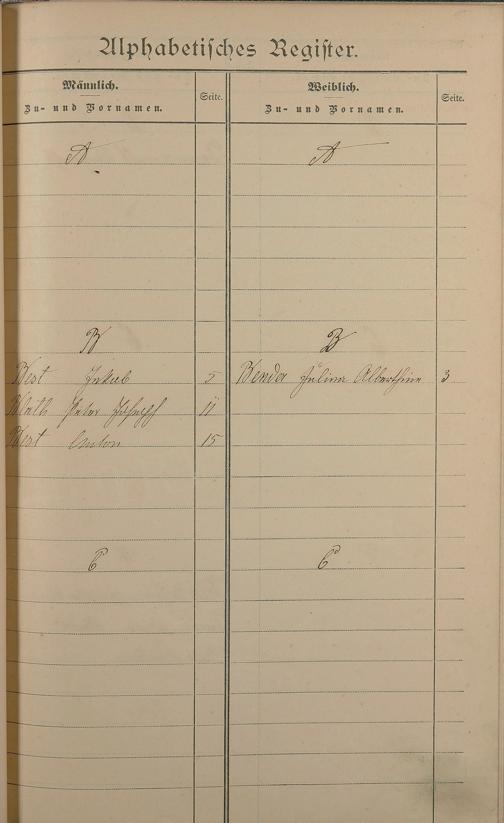 Alphabetisches Register.
Männlich.
Zu- und Vornamen.
Seite.
Weiblich.
Zu- und Vornamen.
Seite.
A
A
B
B
Best Jakob 5
Benda Julina Alberthine 3
Peter Joseph 11
Best Anton 15
C
C